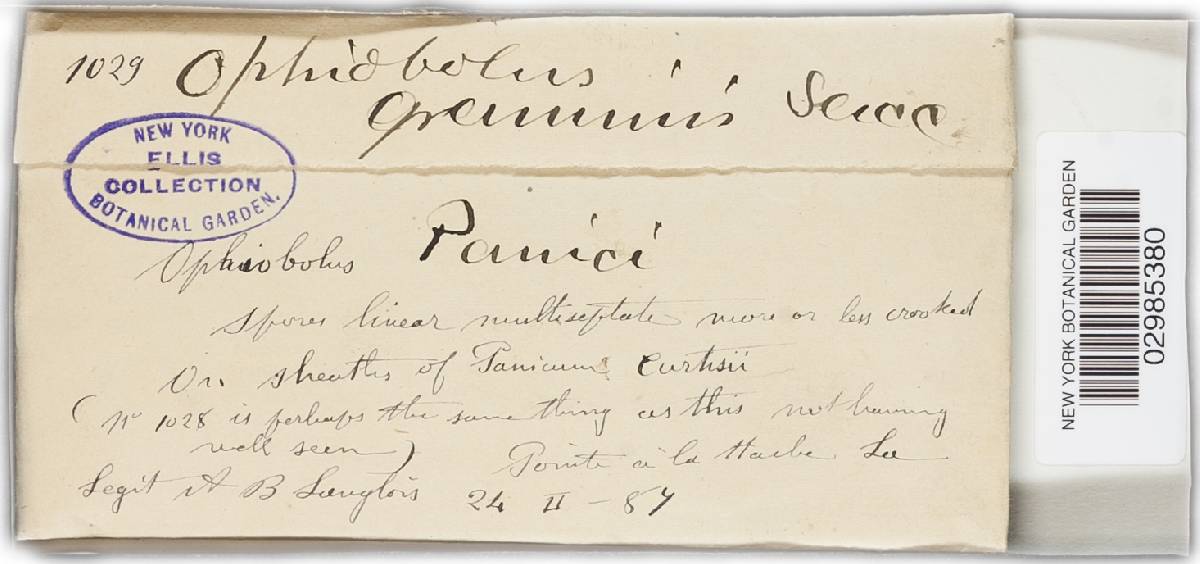 1029 Ophiobolus
graminis Sacc
NEW YORK
ELLIS
COLLECTION
BOTANICAL GARDEN.
Panici
Ophiobolus
Spores linear multiseptate more or less crooked
On sheaths of Panicum Curtisii
(No 1028 is perhaps the same thing as this not having
well seen)
Pointe à la Hache La
Legit A B Langlois 24 II - 87
NEW YORK BOTANICAL GARDEN
02985380